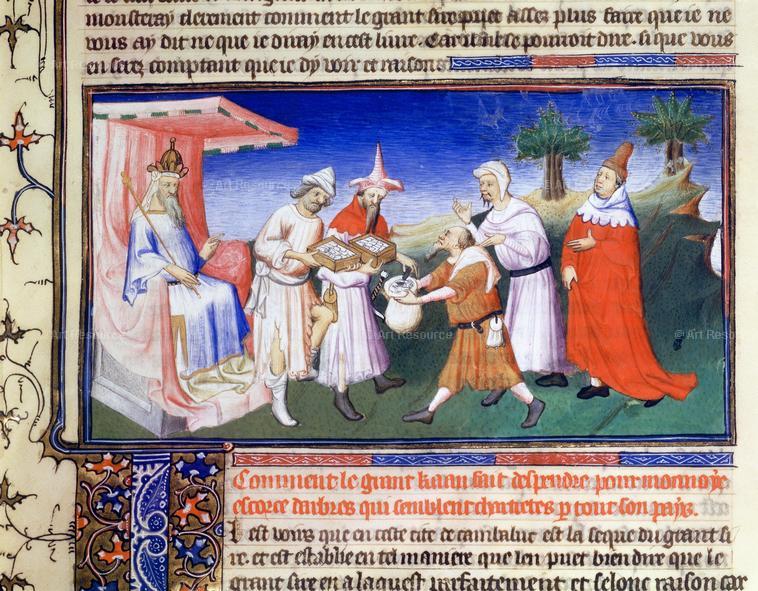 monsteray clerement comment le grant sire puet asses plus faire que ie ne
vous ay dit ne que ie diray en cest liure. Car il se pourroit dire. si que vous
en seres comptant que ie dy voir et raison
Art Resource
© Art Resource
Comment le grant kaan fait despendre pour monnoye
escorce darbres qui semblent chartetes p tout son pays.
Il est voirs que en ceste cite de cambaluc est la seque du grant si
re. et est establie en tel maniere que len puet bien dire que le
grant sire en a laquest parfaitement et selonc raison car